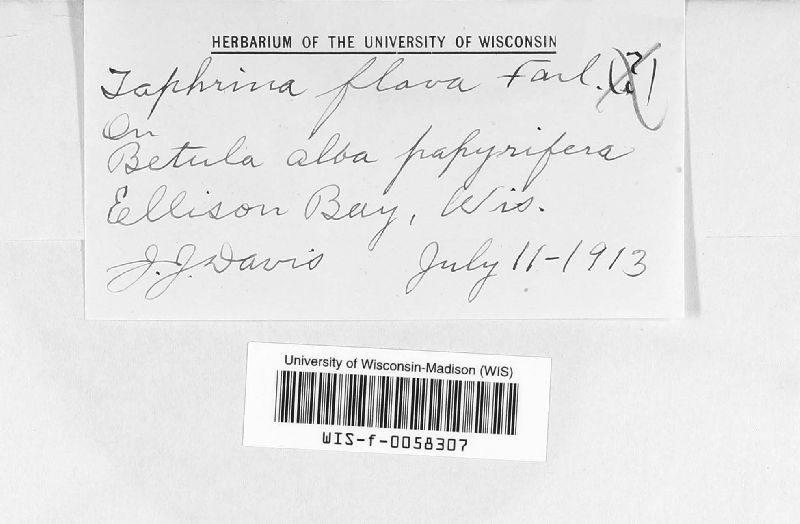 HERBARIUM OF THE UNIVERSITY OF WISCONSIN
Taphrina flava Farl. (?)
On
Betula alba papyrifera
Ellison Bay, Wis.
J.J. Davis July 11-1913
University of Wisconsin-Madison (WIS)
WIS-f-0058307